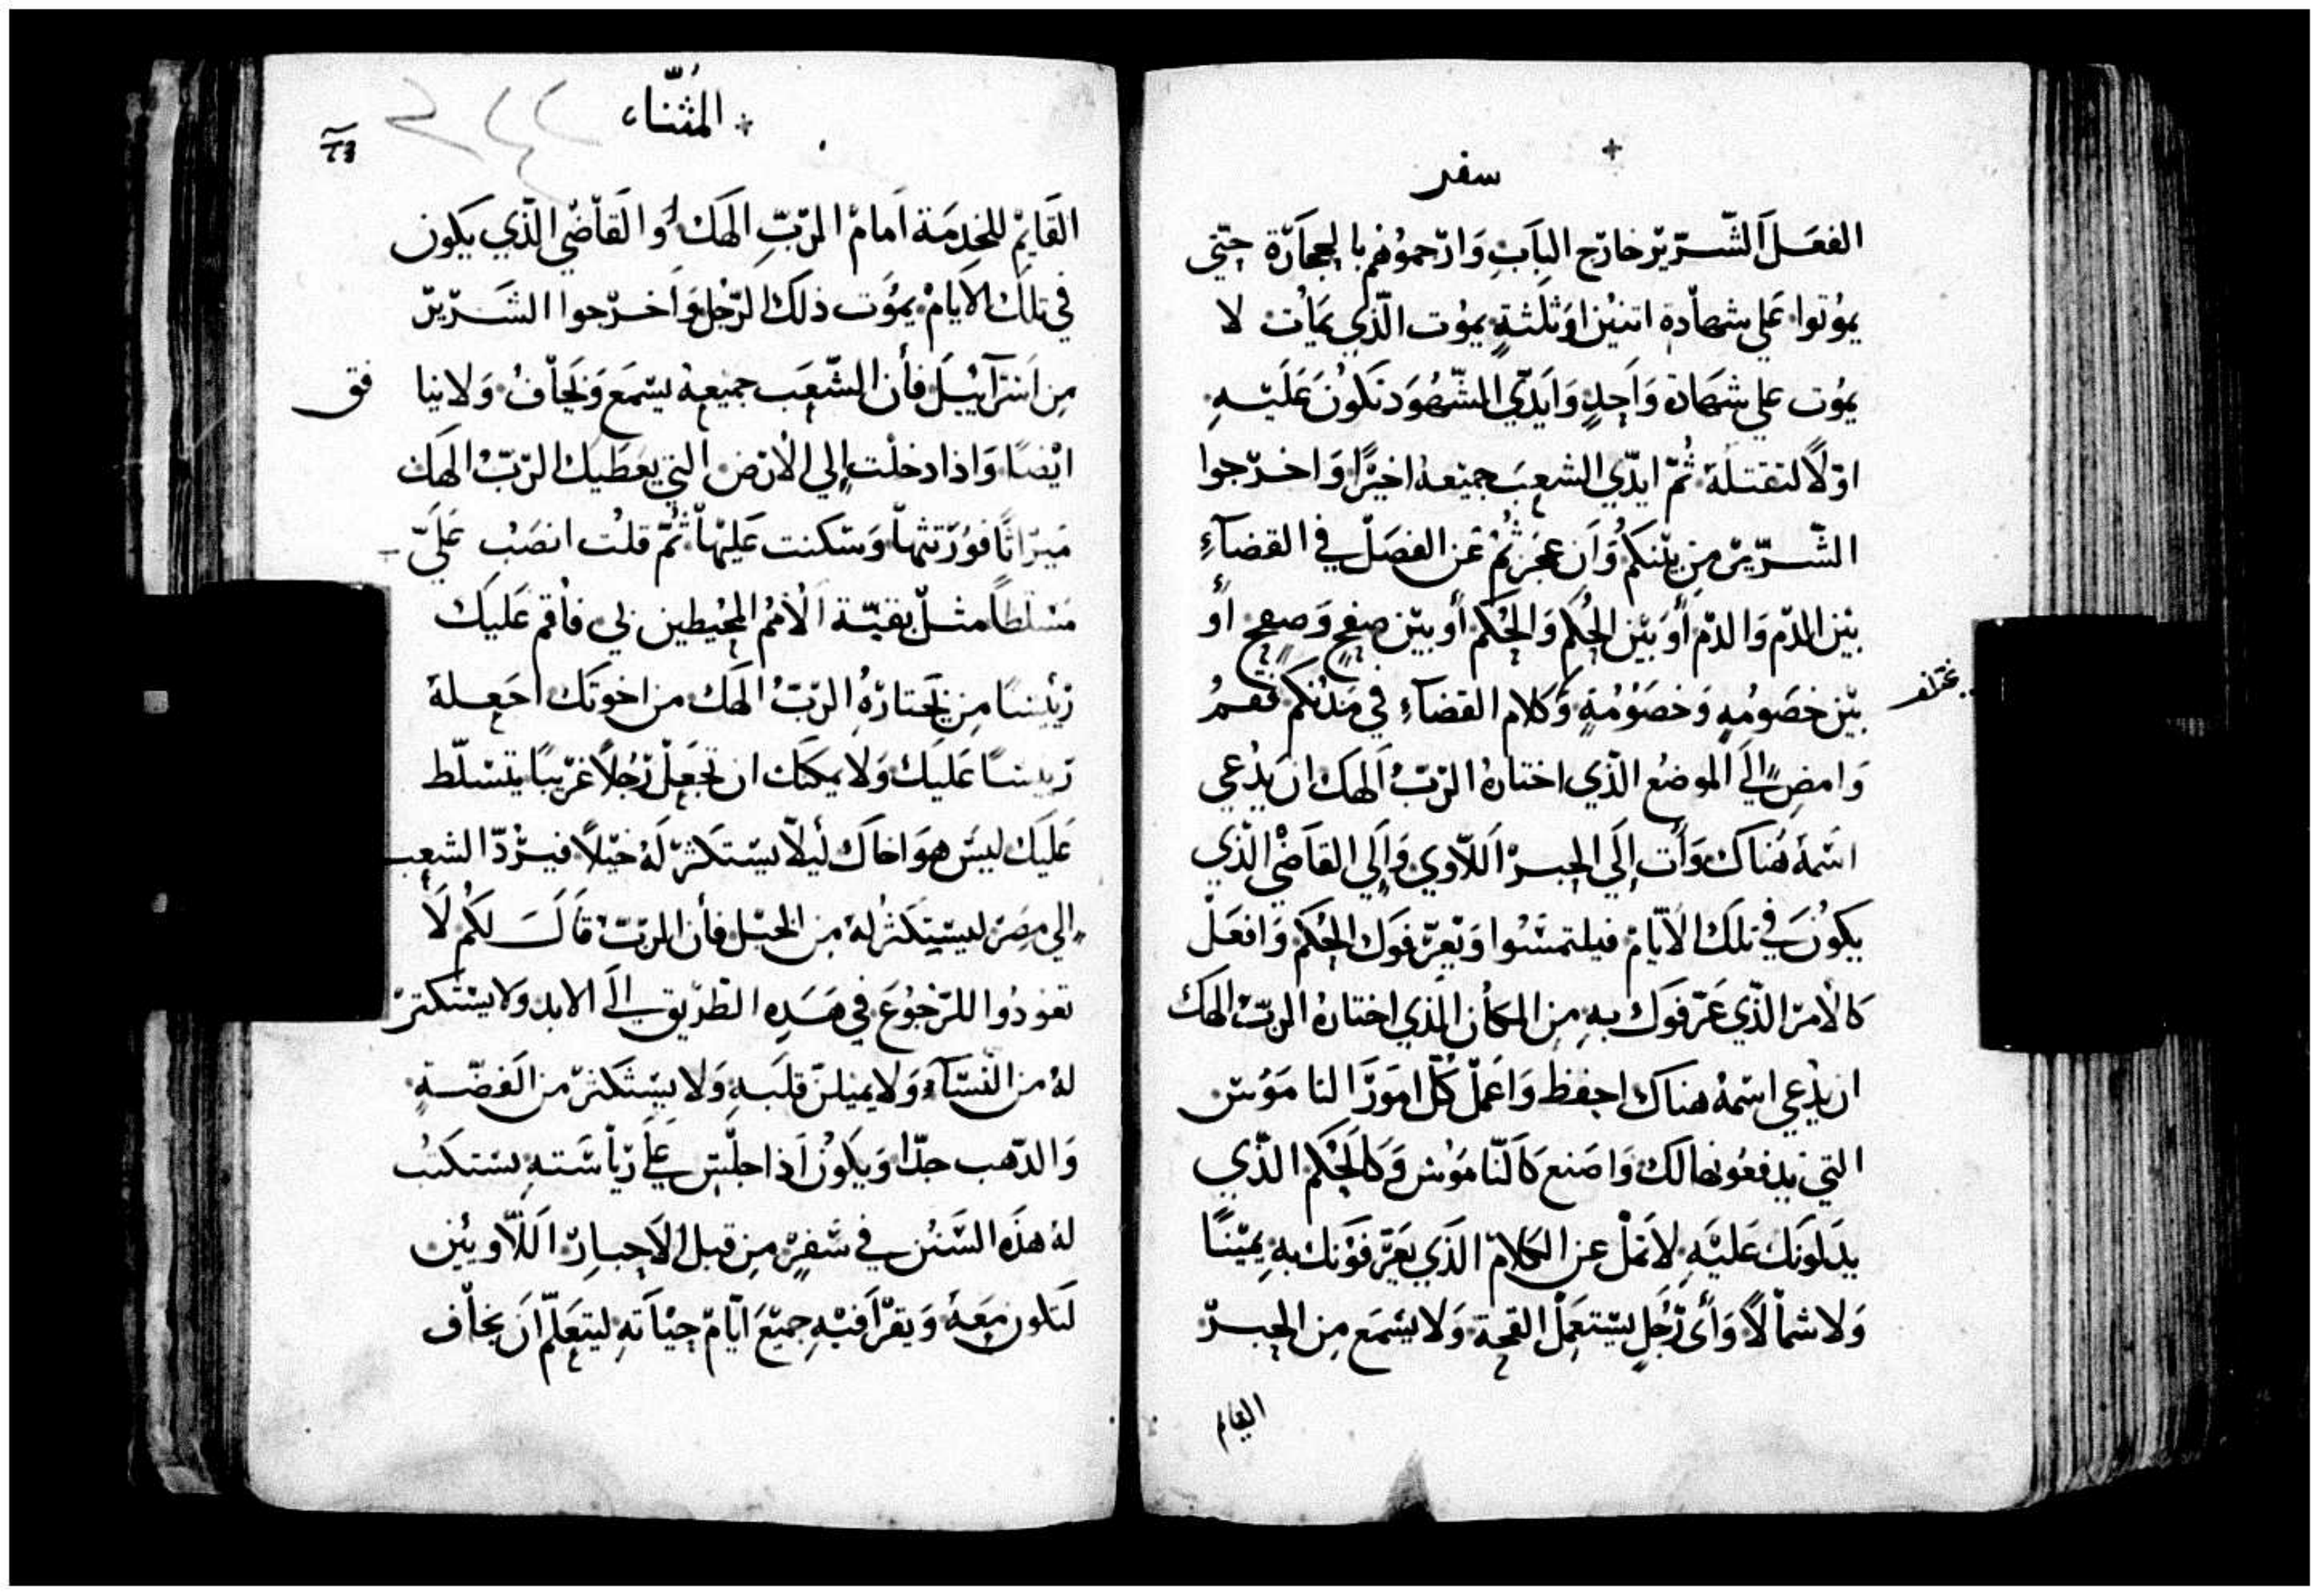 سفر
الفعل الشرير خارج الباب وارجموهم بالحجارة حتي
يموتوا علي شهادة اتنين او ثلثة يموت الذي يمات لا
يموت علي شهادة واحد وايدي الشهود تكون عليه
اولا لتقتله ثم ايدي الشعب جميعه اخيرا واخرجوا
الشرير من بينكم وان عجزتم عن الفصل في القضاء
بين الدم والدم أو بين الحكم والحكم أو بين صفح وصفح أو
بين خصومه وخصومة وكلام القضاء في مدنكم فقم
وامض إلي الموضع الذي اختاره الرب الهك ان يدعي
اسمه هناك وأت إلي الحبر اللاوي وإلي القاضي الذي
يكون في تلك الايام فيلتمسوا ويعرفوك الحكم وافعل
كالأمر الذي عرفوك به من المكان الذي اختاره الرب الهك
ان يدعي اسمه هناك احفظ واعمل كل امور الناموس
التي يدفعونها لك واصنع كالناموس وكالحكم الذي
يدلونك عليه لا تمل عن الكلام الذي يعرفونك به يمينا
ولا شمالا وأي رجل يستعمل القحة ولا يسمع من الحبر
القايم
المثناء
القايم للخدمة امام الرب الهك أو القاضي الذي يكون
في تلك الايام يموت ذلك الرجل وأخرجوا الشرير
من اسرآييل فأن الشعب جميعه يسمع ويخاف ولا ينا
فق
ايضا واذا دخلت إلي الأرض التي يعطيك الرب الهك
ميراثا فورثتها وسكنت عليها ثم قلت انصب علي
مسلطا مثل بقية الأمم المحيطين بي فأقم عليك
رئيسا من يختاره الرب الهك من اخوتك اجعله
رييسا عليك ولا يمكنك ان تجعل رجلا غريبا يتسلط
عليك ليس هو اخاك ليلا يستكثر له خيلا فيرد الشعب
إلي مصر ليستكثر له من الخيل فأن الرب قال لكم لا
تعودوا للرجوع في هذه الطريق إلي الابد ولا يستكتر
له من النساء ولا يميلن قلبه ولا يستكثر من الفضة
والدهب جدا ويكون اذا جلس علي رياسته يستكتب
له هذه السنن في سفر من قبل الاحبار اللاويين
لتكون معه ويقرأ فيه جميع ايام حياته ليتعلم ان يخاف